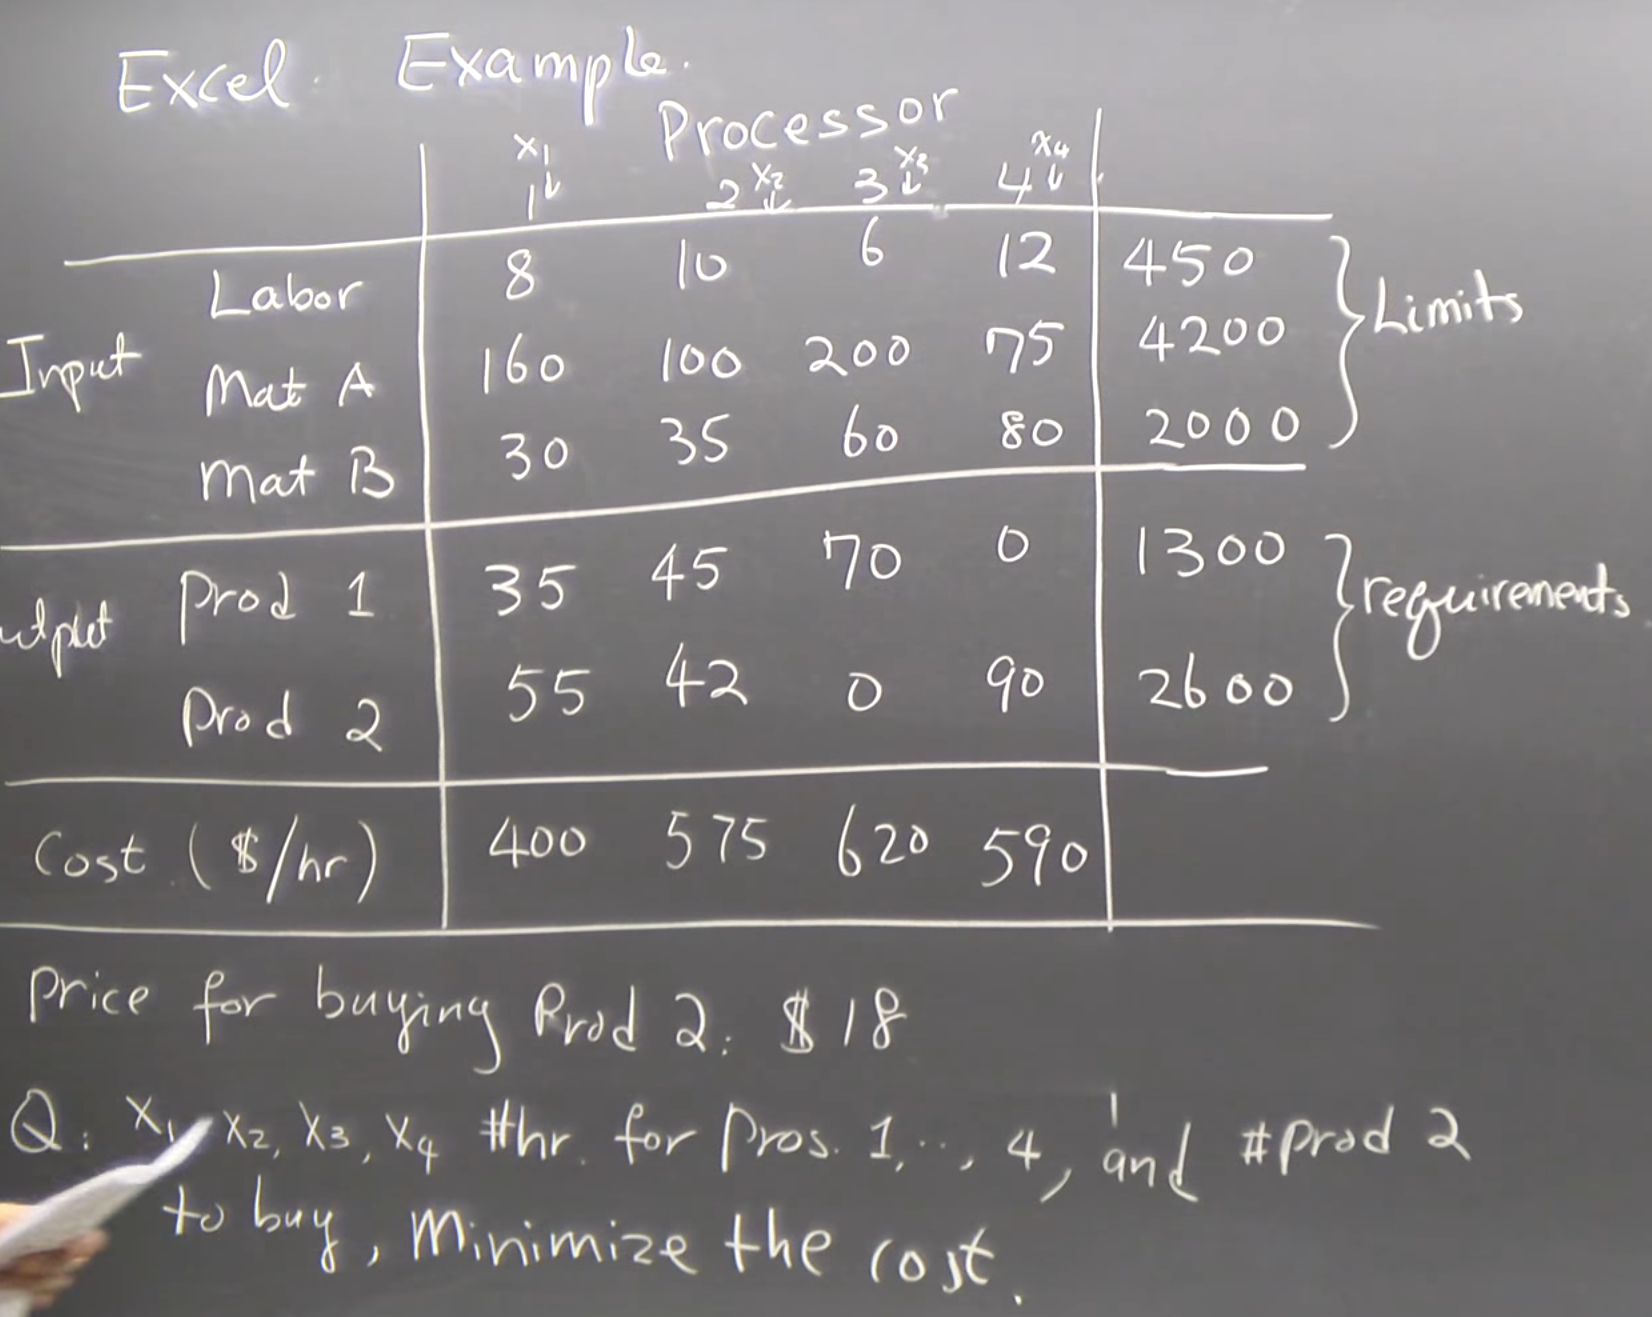 Excel. Example.
Processor
x1 ↓ x2 ↓ x3 ↓ x4 ↓
1 2 3 4
Labor 8 10 6 12 450
Input Mat A 160 100 200 75 4200 Limits
Mat B 30 35 60 80 2000
Prod 1 35 45 70 0 1300
utput requirements
Prod 2 55 42 0 90 2600
Cost ($/hr) 400 575 620 590
Price for buying Prod 2: $18
Q: x1, x2, x3, x4 #hr. for Pros. 1,..,4, and #prod 2
to buy, Minimize the cost.